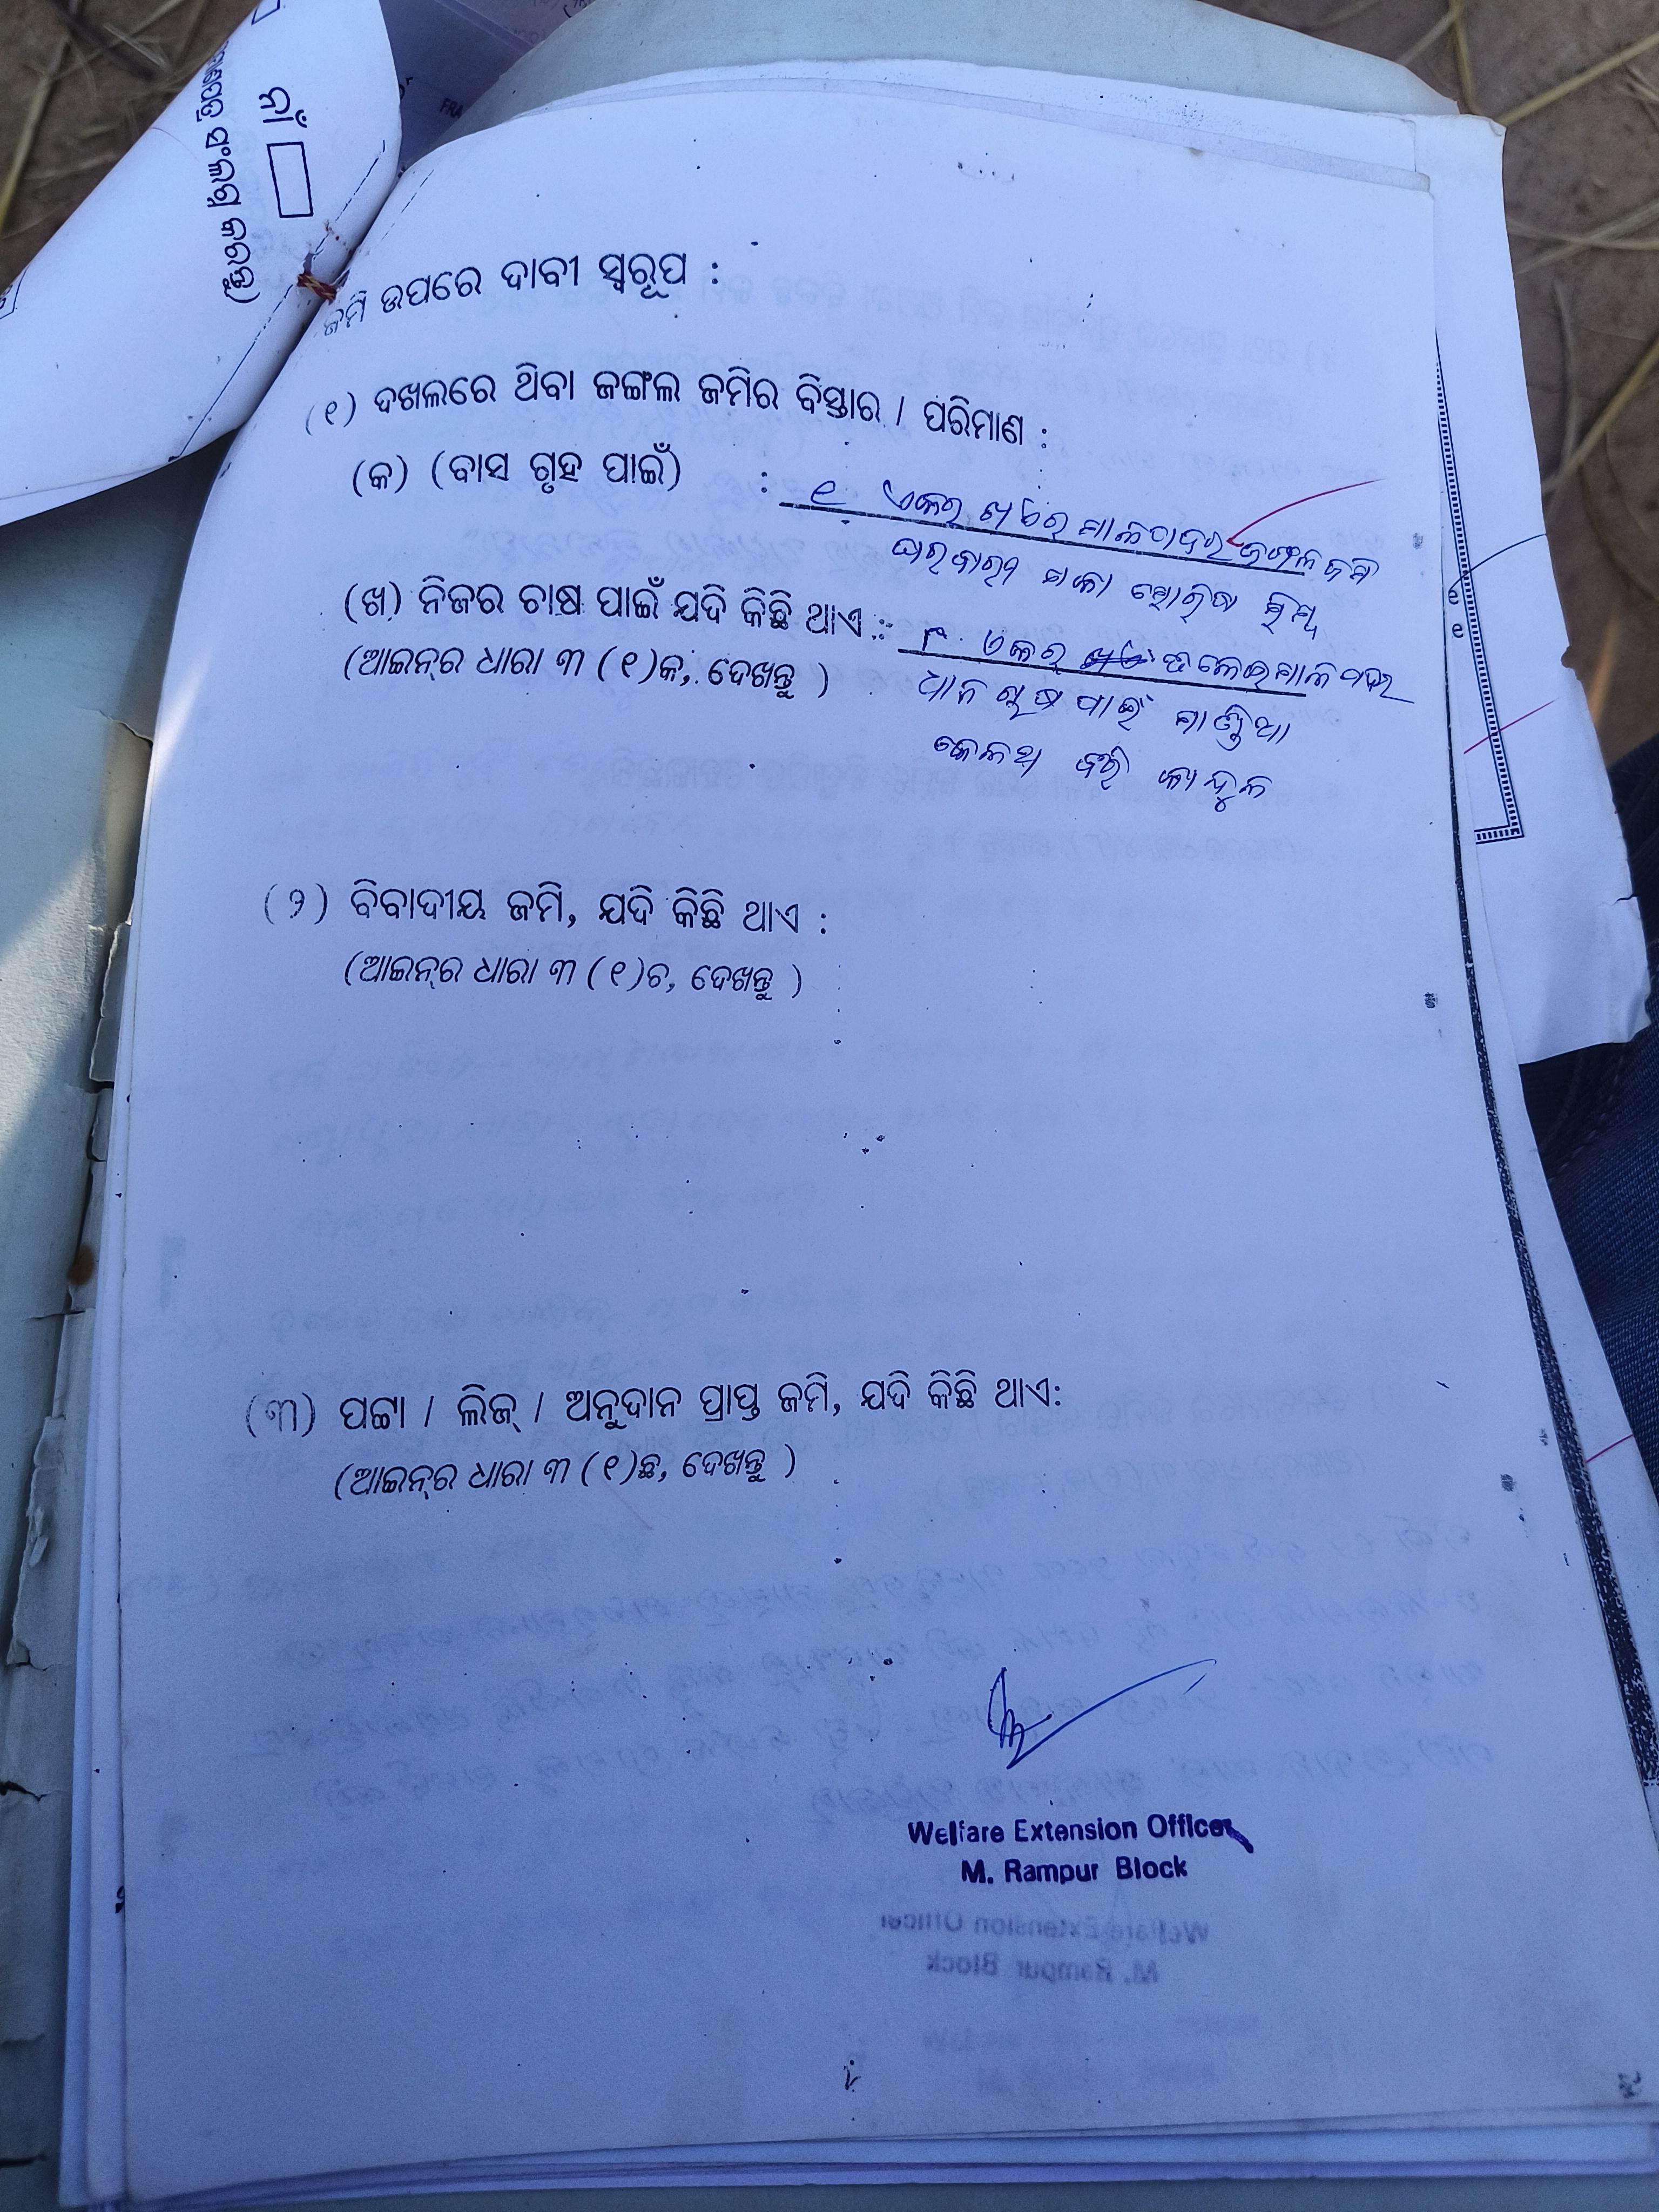 ନାଁ
ସଂଲଗ୍ନ କରନ୍ତୁ)
ଜମି ଉପରେ ଦାବୀ ସ୍ୱରୂପ :
(୧) ଦଖଲରେ ଥିବା ଜଙ୍ଗଲ ଜମିର ବିସ୍ତାର / ପରିମାଣ :
(କ) (ବାସ ଗୃହ ପାଇଁ) : ୧ ଏକର ଜଙ୍ଗଲ ଜମି
ଘରବାରୀ ମକା
(ଖ) ନିଜର ଚାଷ ପାଇଁ ଯଦି କିଛି ଥାଏ : ୮ ଏକର
(ଆଇନ୍‌ର ଧାରା ୩ (୧)କ, ଦେଖନ୍ତୁ ) ଧାନ ଚାଷ ପାଇଁ ମାଣ୍ଡିଆ
କୋଳଥ କାନ୍ଦୁଳ
(୨) ବିବାଦୀୟ ଜମି, ଯଦି କିଛି ଥାଏ :
(ଆଇନ୍‌ର ଧାରା ୩ (୧)ଚ, ଦେଖନ୍ତୁ )
(୩) ପଟ୍ଟା / ଲିଜ୍ / ଅନୁଦାନ ପ୍ରାପ୍ତ ଜମି, ଯଦି କିଛି ଥାଏ:
(ଆଇନ୍‌ର ଧାରା ୩ (୧)ଛ, ଦେଖନ୍ତୁ )
Welfare Extension Officer
M. Rampur Block